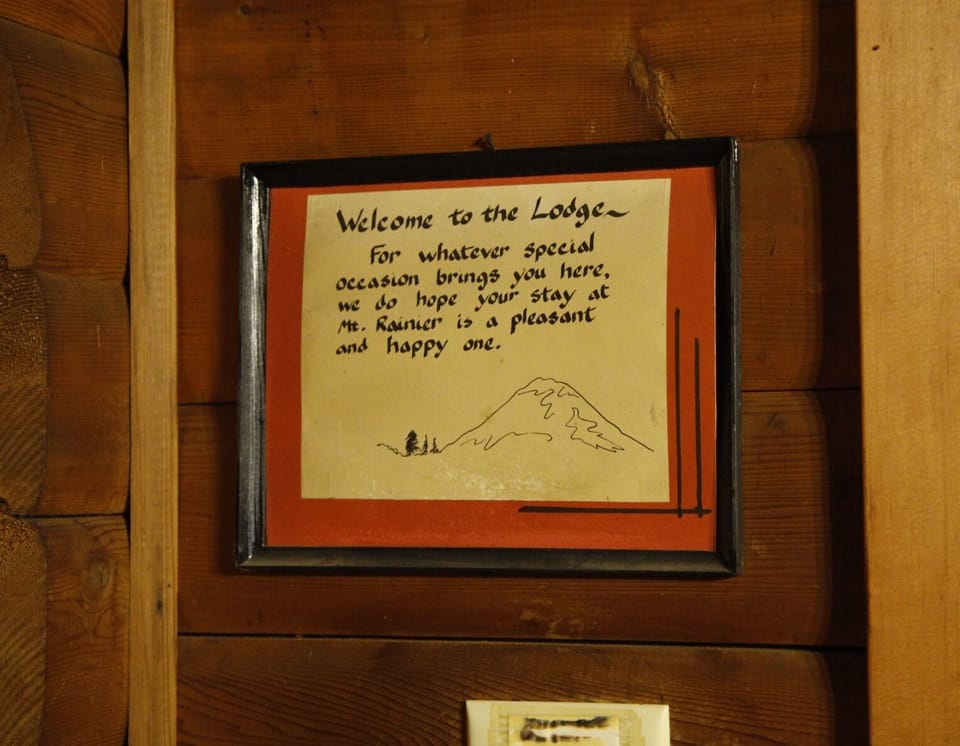 Welcome to the Lodge~
For whatever special
occasion brings you here,
we do hope your stay at
Mt. Rainier is a pleasant
and happy one.